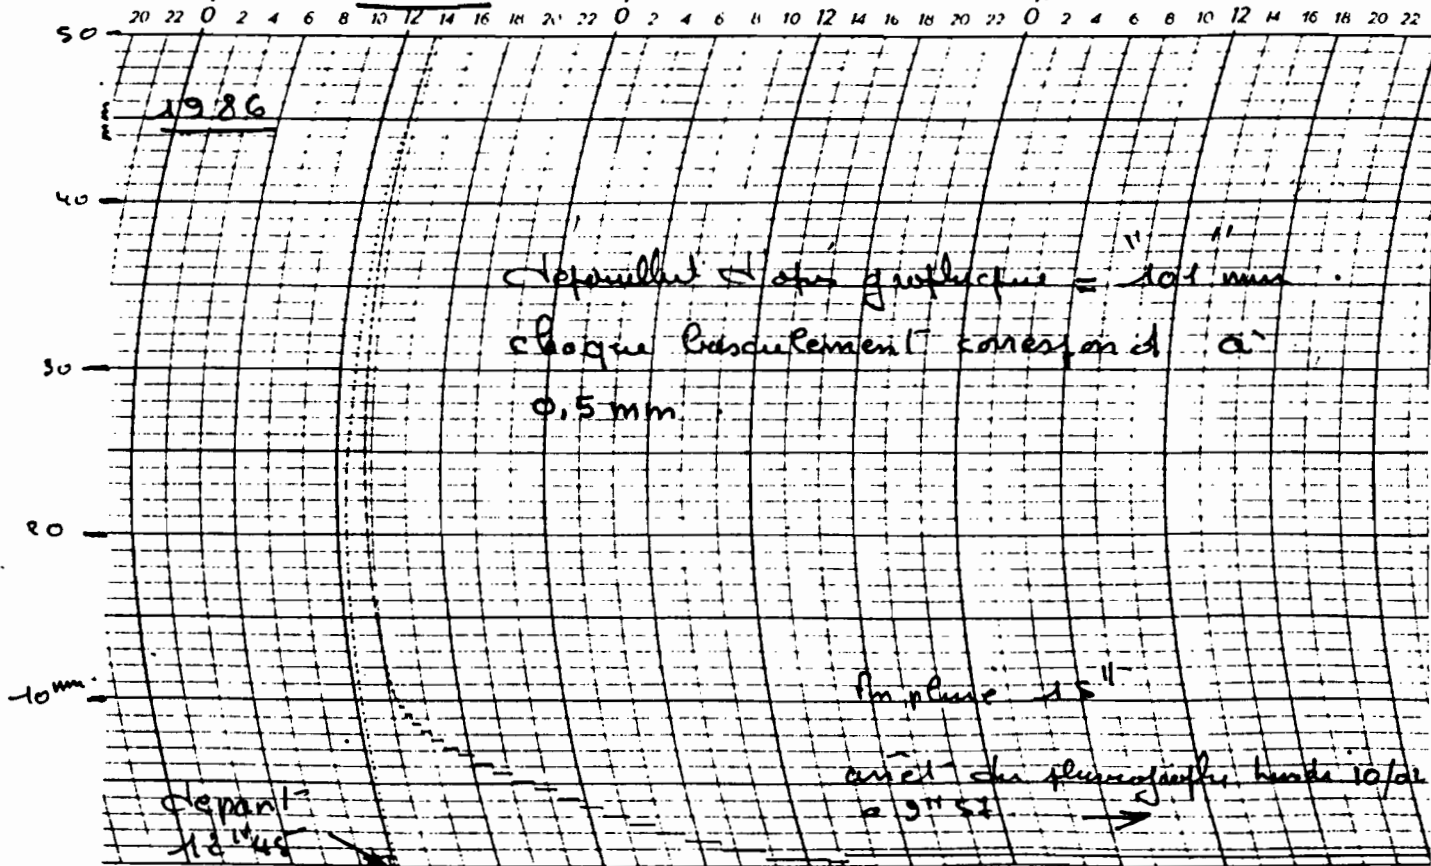 20 22 0 2 4 6 8 10 12 14 16 18 20 22 0 2 4 6 8 10 12 14 16 18 20 22 0 2 4 6 8 10 12 14 16 18 20 22
50
1986
mm
40
graphique = 101 mm.
chaque basculement correspond à
30
0,5 mm.
20
10 mm.
pluie 15 H
arrêt du pluviographe lundi 10/02
a 9 H 57
depart
12 H 45